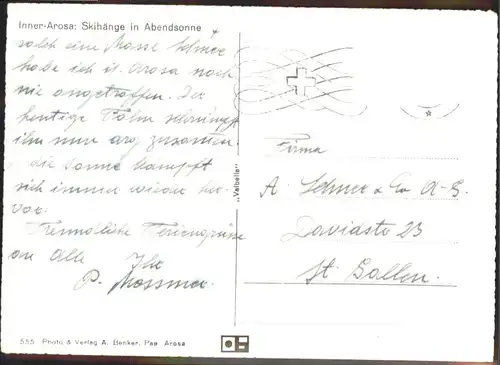 Inner-Arosa: Skihänge in Abendsonne
solch eine Masse Schnee
habe ich i. Arosa noch
nie angetroffen. Der
heutige Föhn schrumpft
ihn nun arg zusammen
die Sonne kämpft
sich immer wieder her-
vor.
Freundliche Feriengrüsse
an Alle Ihr
P. Mossmer.
"Valbella"
Firma
A. & Co A-G.
Davidstr 23
St. Gallen.
555 Photo & Verlag A. Benker, Pap. Arosa